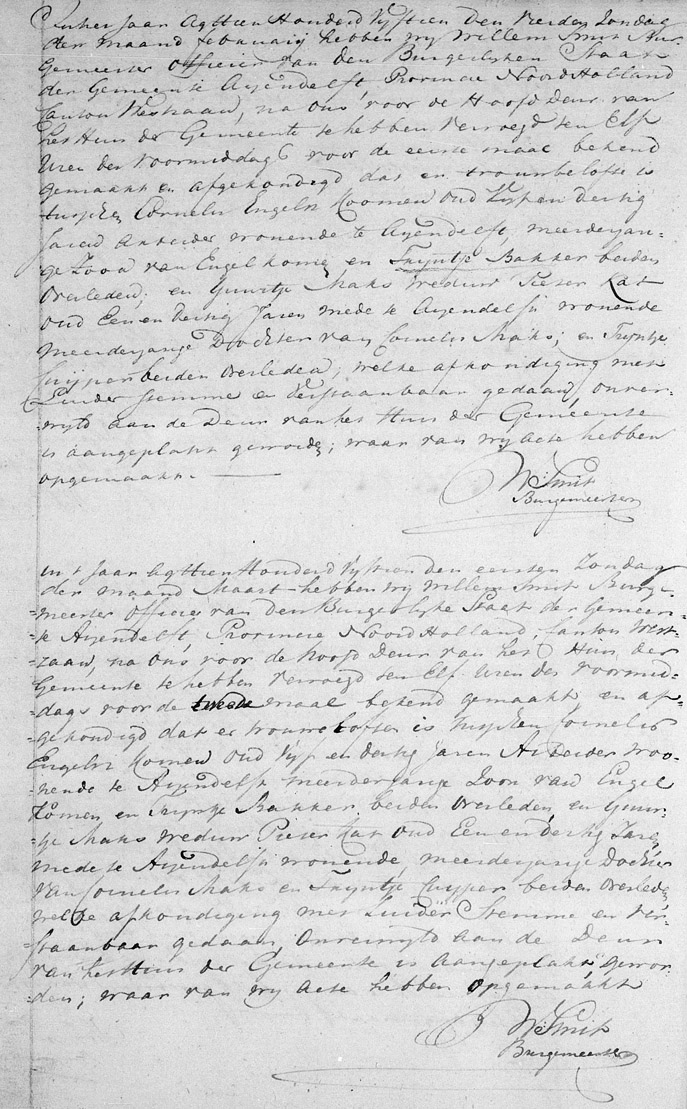 In het Jaar Agttien Honderd Vyftien Den Vierden Zondag
der maand februarij hebben wy Willem Smit Bur-
Gemeester officier van den Burgerlyken Staat
der Gemeente Assendelft, Provincie Noord Holland
Canton Westzaan, na ons voor de Hoofd Deur van
het Huis der Gemeente te hebben vervoegd ten Elf
Uren des voormiddags voor de eerste maal bekend
gemaakt en afgekondigd dat er trouwbelofte is
tusschen Cornelis Engelsz Koomen oud Vyf en dertig
Jaren Arbeider wonende te Assendelft, meerderjari-
ge Zoon van Engel Komen en Tryntje Bakker beiden
overleden; en Guurtje Maks weduw Pieter Kat
oud Een en dertig Jaren mede te Assendelft wonende
meerderjarige Dochter van Cornelis Maks; en Tryntje
Cuyper beiden overleden, welke afkondiging met
Luider stemme en verstaanbaar gedaan, onver-
wyld aan de Deur van het Huis der Gemeente
is aangeplakt geworden; waar van wy acte hebben
opgemaakt.
W: Smit
Burgemeester
In t Jaar Agttien Honderd Vyftien den eersten Zondag
der maand Maart hebben wy Willem Smit Burge-
=meester officier van den Burgerlyke Staat der Gemeen-
=te Assendelft Provincie Noord Holland, Canton West-
=zaan, na ons voor de hoofd Deur van het Huis der
Gemeente te hebben vervoegd ten Elf Uren des voormid-
=dags voor de tweede maal bekend gemaakt, en af-
=gekondigd dat er trouwbeloften is tusschen Cornelis
Engelsz Komen oud Vyf en dertig Jaren Arbeider woo-
=nende te Assendelft meerderjarige Zoon van Engel
Komen, en Tryntje Bakker, beiden overleden, en Guur-
tje Maks weduw Pieter Kat oud Een en dertig Jare,
mede te Assendelft wonende, meerderjarige Dochter
van Cornelis Maks en Tryntje Cuyper beiden overleden
welke afkondiging met Luider Stemme en ver-
=staanbaar gedaan, onverwyld aan de Deur
van het Huis der Gemeente is Aangeplakt, gewor-
den; waar van wy acte hebben opgemaakt
W: Smit
Burgemeester